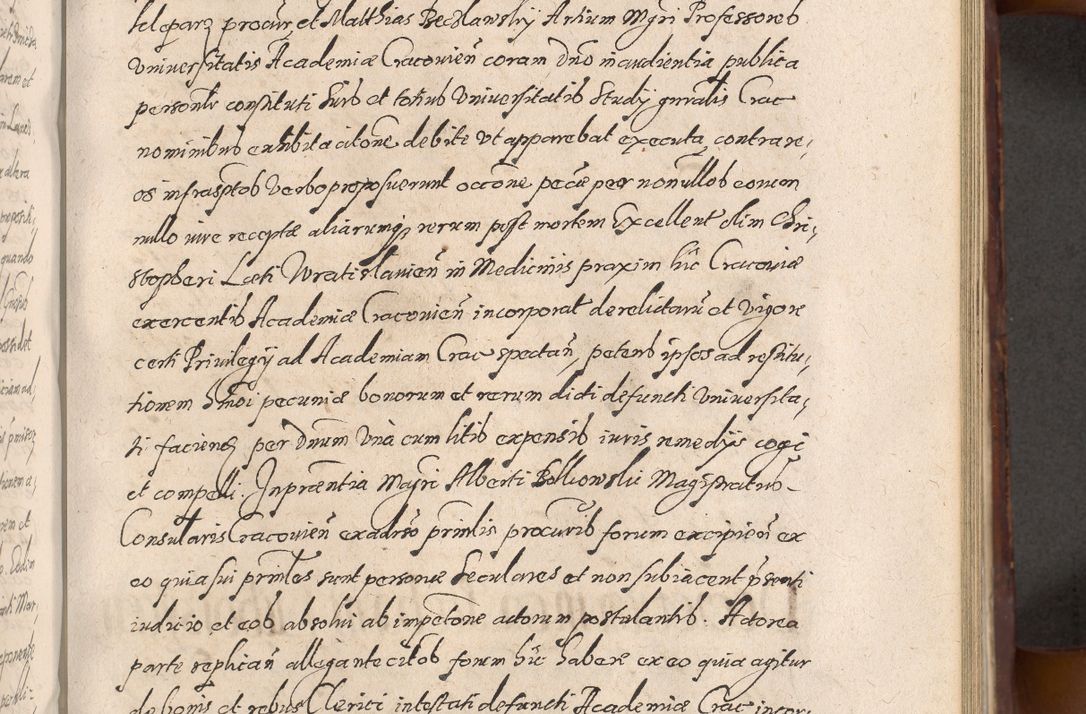 et Matthias Beclawsky Artium Mgri Professores
Universitatis Academiæ Cracovien coram Dno in audientia publica
personlr constituti suis et totius Universitatis Study gnralis Crac
nominibus exhibita citone debite ut apparebat executa, contra re,
os infrasptos verbo proposuerunt occone pecæ per nonullos eorum
nullo iure receptæ aliarumq rerum post mortem Excellent olim Chri,
stopheri Læti Wratislavien in Medicinis praxim hic Cracoviæ
exercentis Academiæ Cracovien incorporat derelictaru et vigore
certi Privilegy ad Academiam Crac spectan, petens ipsos ad restitu,
tionem hmoi pecuniæ bonorum et rerum dicti defuncti Universita,
ti facien per Dnum una cum litis expensis iuris remedys cogi
et compelli. In præntia Mgri Alberti Magistratus
Consularis Cracovien ex adrso prinlis procuris forum excipien ex
eo quia sui prinles sunt personæ seculares et non subiacent psenti
iudicio et eos absolvi ab impetone actorum postulantis. Actorea
parte replican allegante citos forum hic habere ex eo quia agitur
de bonis et rebus Clerici intestati defuncti Academiæ Crac incor,